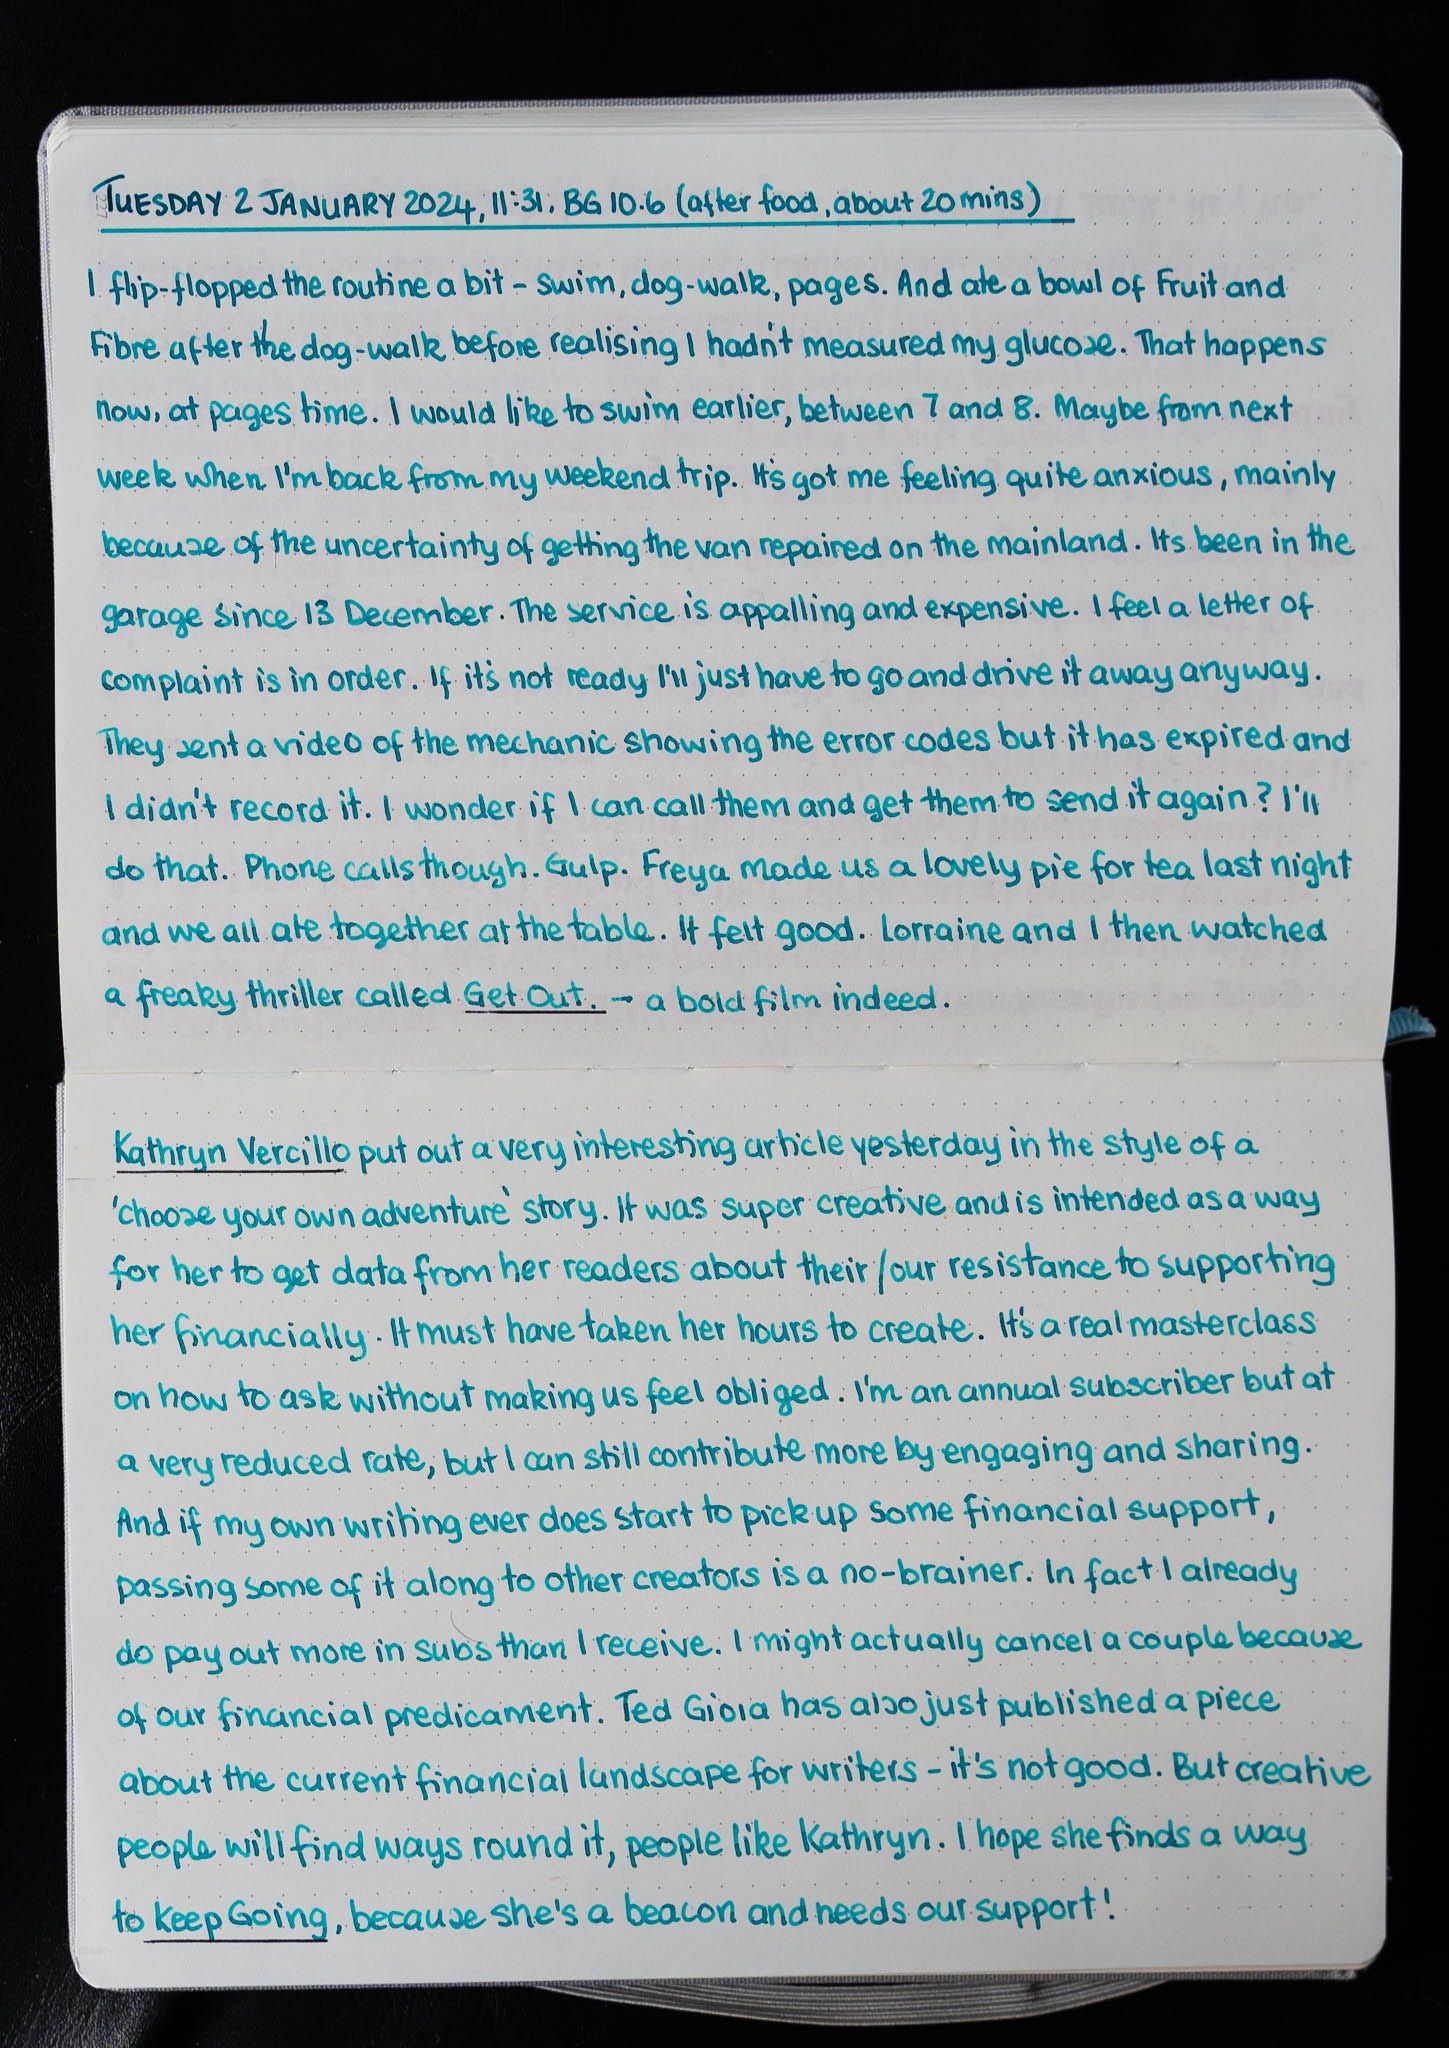 TUESDAY 2 JANUARY 2024, 11:31. BG 10.6 (after food, about 20 mins)
I flip-flopped the routine a bit - swim, dog-walk, pages. And ate a bowl of Fruit and
Fibre after the dog-walk before realising I hadn't measured my glucose. That happens
now, at pages time. I would like to swim earlier, between 7 and 8. Maybe from next
week when I'm back from my weekend trip. It's got me feeling quite anxious, mainly
because of the uncertainty of getting the van repaired on the mainland. Its been in the
garage since 13 December. The service is appalling and expensive. I feel a letter of
complaint is in order. If it's not ready I'll just have to go and drive it away anyway.
They sent a video of the mechanic showing the error codes but it has expired and
I didn't record it. I wonder if I can call them and get them to send it again? I'll
do that. Phone calls though. Gulp. Freya made us a lovely pie for tea last night
and we all ate together at the table. It felt good. Lorraine and I then watched
a freaky thriller called Get Out. - a bold film indeed.
Kathryn Vercillo put out a very interesting article yesterday in the style of a
'choose your own adventure' story. It was super creative and is intended as a way
for her to get data from her readers about their/our resistance to supporting
her financially. It must have taken her hours to create. It's a real masterclass
on how to ask without making us feel obliged. I'm an annual subscriber but at
a very reduced rate, but I can still contribute more by engaging and sharing.
And if my own writing ever does start to pick up some financial support,
passing some of it along to other creators is a no-brainer. In fact I already
do pay out more in subs than I receive. I might actually cancel a couple because
of our financial predicament. Ted Gioia has also just published a piece
about the current financial landscape for writers - it's not good. But creative
people will find ways round it, people like Kathryn. I hope she finds a way
to Keep Going, because she's a beacon and needs our support!